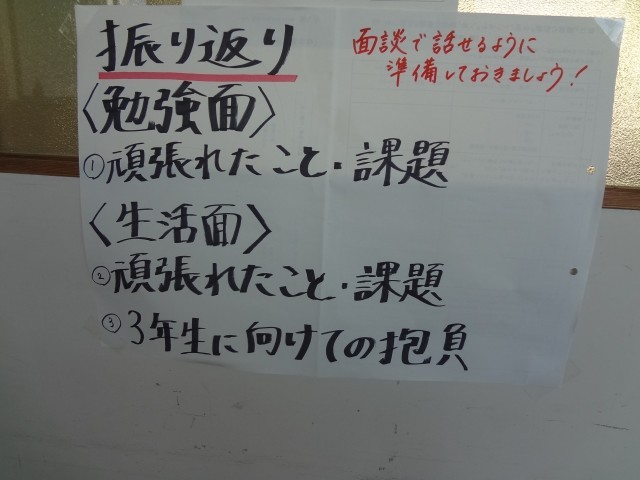 振り返り
面談で話せるように
準備しておきましょう！
〈勉強面〉
①頑張れたこと・課題
〈生活面〉
②頑張れたこと・課題
③3年生に向けての抱負